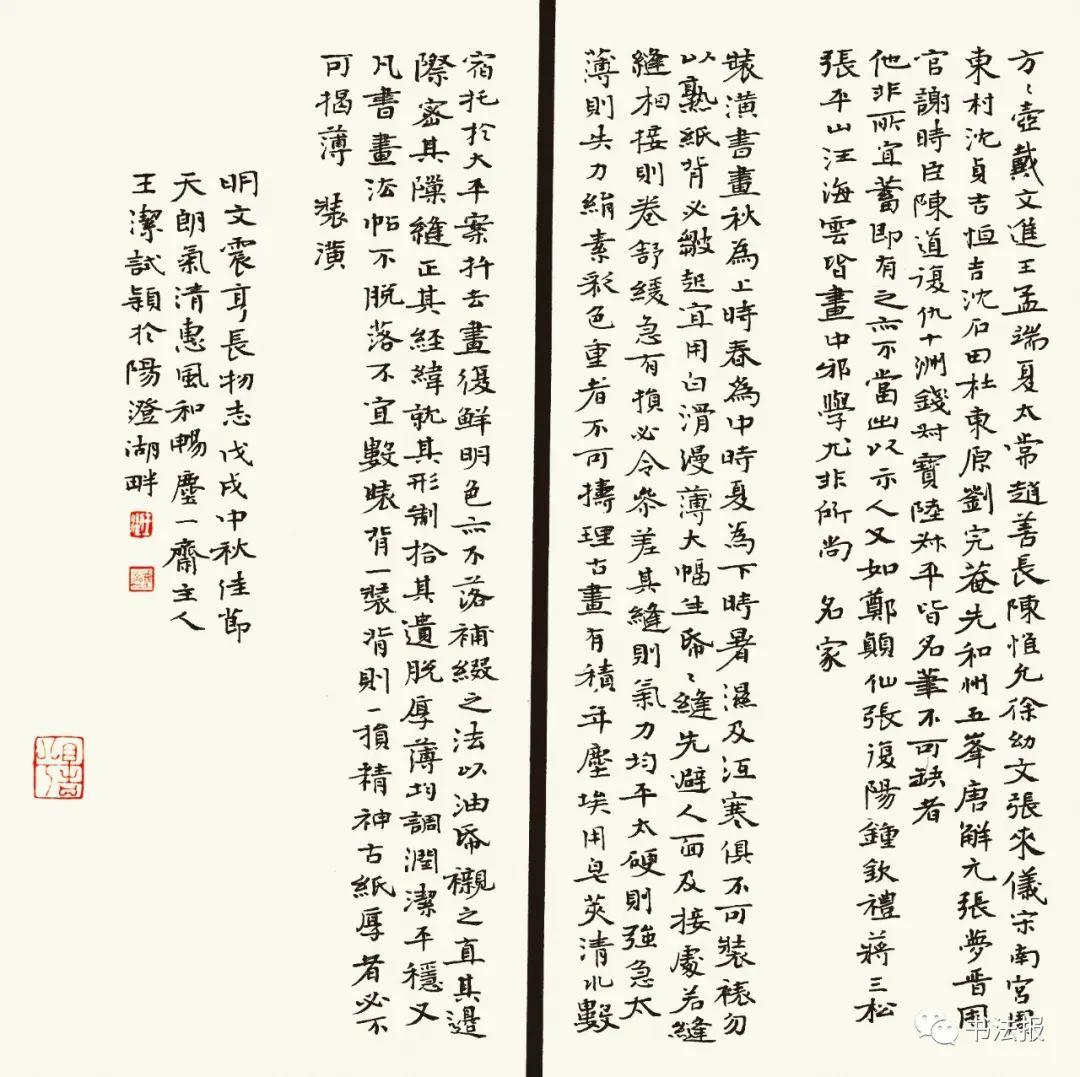 方〻壺戴文進王孟端夏太常趙善長陳惟允徐幼文張來儀宋南宮周
東村沈貞吉恒吉沈石田杜東原劉完菴先和州五峯唐解元張夢晋周
官謝時臣陳道復仇十洲錢叔寶陸叔平皆名筆不可缺者
他非所宜蓄即有之亦不當出以示人又如鄭顛仙張復陽鍾欽禮蔣三松
張平山汪海雲皆畫中邪學尤非所尚 名家
裝潢書畫秋為上時春為中時夏為下時暑濕及沍寒俱不可裝裱勿
以熟紙背必皺起宜用白滑漫薄大幅生帋〻縫先避人面及接處若縫
縫相接則卷舒緩急有損必令參差其縫則氣力均平太硬則強急太
薄則失力絹素彩色重者不可擣理古畫有積年塵埃用皂莢清水數
宿托於大平案扞去畫復鮮明色亦不落補綴之法以油帋襯之直其邊
際密其隟縫正其経緯就其形制拾其遺脫厚薄均調潤潔平穩又
凡書畫法帖不脫落不宜數裝背一裝背則一損精神古紙厚者必不
可揭薄 裝潢
明文震亨長物志戊戌中秋佳節
天朗氣清惠風和暢塵一齋主人
王潔試穎於陽澄湖畔
书法报